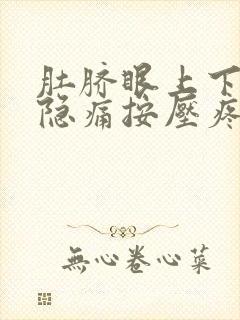 肚脐眼上下
隐痛按壓疼
無心卷心菜